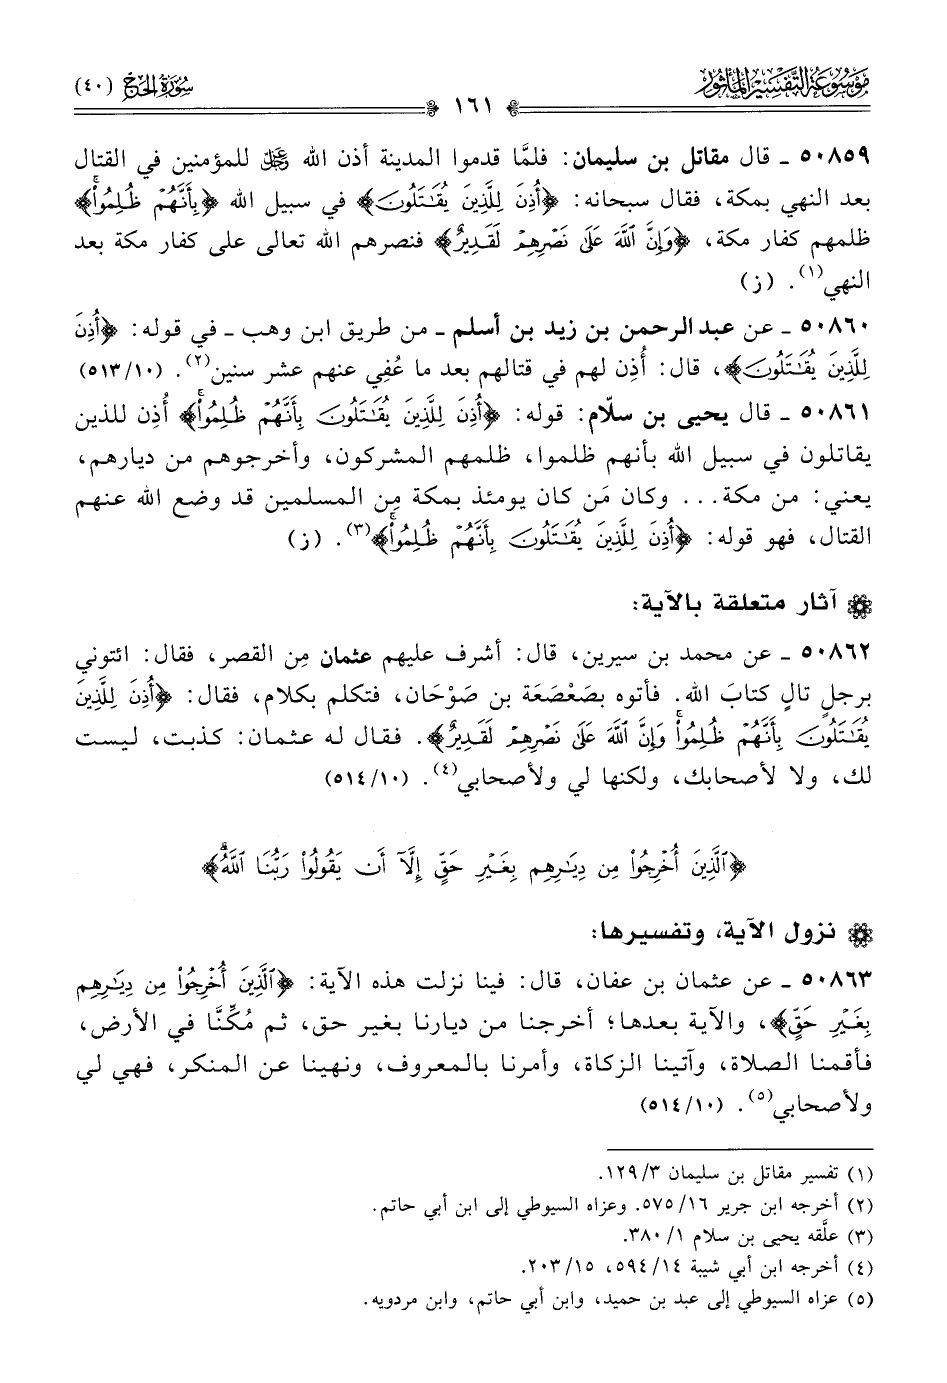 موسوعة التفسير المأثور
سورة الحج (٤٠)
١٦١
٥٠٨٥٩ ـ قال مقاتل بن سليمان: فلمَّا قدموا المدينة أذن الله ﷻ للمؤمنين في القتال
بعد النهي بمكة، فقال سبحانه: ﴿أُذِنَ لِلَّذِينَ يُقَٰتَلُونَ﴾ في سبيل الله ﴿بِأَنَّهُمْ ظُلِمُوا۟ۚ﴾
ظلمهم كفار مكة، ﴿وَإِنَّ ٱللَّهَ عَلَىٰ نَصْرِهِمْ لَقَدِيرٌ﴾ فنصرهم الله تعالى على كفار مكة بعد
النهي(١). (ز)
٥٠٨٦٠ ـ عن عبد الرحمن بن زيد بن أسلم ـ من طريق ابن وهب ـ في قوله: ﴿أُذِنَ
لِلَّذِينَ يُقَٰتَلُونَ﴾، قال: أُذِن لهم في قتالهم بعد ما عُفِي عنهم عشر سنين(٢). (٥١٣/١٠)
٥٠٨٦١ ـ قال يحيى بن سلّام: قوله: ﴿أُذِنَ لِلَّذِينَ يُقَٰتَلُونَ بِأَنَّهُمْ ظُلِمُوا۟ۚ﴾ أُذِن للذين
يقاتلون في سبيل الله بأنهم ظلموا، ظلمهم المشركون، وأخرجوهم من ديارهم،
يعني: من مكة... وكان مَن كان يومئذ بمكة مِن المسلمين قد وضع الله عنهم
القتال، فهو قوله: ﴿أُذِنَ لِلَّذِينَ يُقَٰتَلُونَ بِأَنَّهُمْ ظُلِمُوا۟ۚ﴾(٣). (ز)
آثار متعلقة بالآية:
٥٠٨٦٢ ـ عن محمد بن سيرين، قال: أشرف عليهم عثمان مِن القصر، فقال: ائتوني
برجلٍ تالٍ كتابَ الله. فأتوه بصَعْصَعَة بن صَوْحَان، فتكلم بكلام، فقال: ﴿أُذِنَ لِلَّذِينَ
يُقَٰتَلُونَ بِأَنَّهُمْ ظُلِمُوا۟ۚ وَإِنَّ ٱللَّهَ عَلَىٰ نَصْرِهِمْ لَقَدِيرٌ﴾. فقال له عثمان: كذبت، ليست
لك، ولا لأصحابك، ولكنها لي ولأصحابي(٤). (٥١٤/١٠)
﴿ٱلَّذِينَ أُخْرِجُوا۟ مِن دِيَٰرِهِم بِغَيْرِ حَقٍّ إِلَّآ أَن يَقُولُوا۟ رَبُّنَا ٱللَّهُۗ﴾
نزول الآية، وتفسيرها:
٥٠٨٦٣ ـ عن عثمان بن عفان، قال: فينا نزلت هذه الآية: ﴿ٱلَّذِينَ أُخْرِجُوا۟ مِن دِيَٰرِهِم
بِغَيْرِ حَقٍّ﴾، والآية بعدها؛ أخرجنا من ديارنا بغير حق، ثم مُكِّنَّا في الأرض،
فأقمنا الصلاة، وآتينا الزكاة، وأمرنا بالمعروف، ونهينا عن المنكر، فهي لي
ولأصحابي(٥). (٥١٤/١٠)
(١) تفسير مقاتل بن سليمان ١٢٩/٣.
(٢) أخرجه ابن جرير ٥٧٥/١٦. وعزاه السيوطي إلى ابن أبي حاتم.
(٣) علَّقه يحيى بن سلام ٣٨٠/١.
(٤) أخرجه ابن أبي شيبة ٥٩٤/١٤، ٢٠٣/١٥.
(٥) عزاه السيوطي إلى عبد بن حميد، وابن أبي حاتم، وابن مردويه.